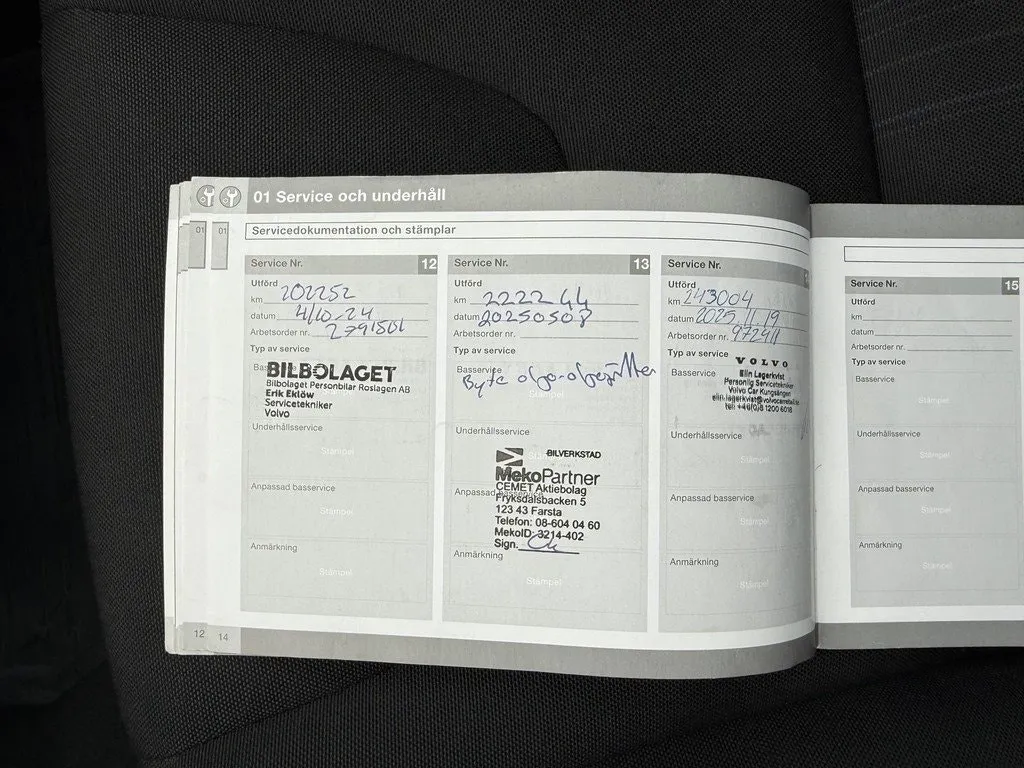 01 Service och underhåll
01 01
Servicedokumentation och stämplar
Service Nr. 12
Utförd
km 202252
datum 4/10-24
Arbetsorder nr. 2791501
Typ av service
Basservice
BILBOLAGET
Bilbolaget Personbilar Roslagen AB
Erik Eklöw
Servicetekniker
Volvo
Underhållsservice
Stämpel
Anpassad basservice
Stämpel
Anmärkning
Stämpel
Service Nr. 13
Utförd
km 222244
datum 20250508
Arbetsorder nr.
Typ av service
Basservice
Byte olja-oljefilter
Stämpel
Underhållsservice
BILVERKSTAD
MekoPartner
CEMET Aktiebolag
Anpassad basservice
Fryksdalsbacken 5
123 43 Farsta
Telefon: 08-604 04 60
MekoID: 3214-402
Sign.
Anmärkning
Stämpel
Service Nr.
Utförd
km 243004
datum 2025 11 19
Arbetsorder nr. 972411
Typ av service
VOLVO
Basservice
Elin Lagerkvist
Personlig Servicetekniker
Volvo Car Kungsängen
tel: +46(0)8 1200 6018
Underhållsservice
Stämpel
Anpassad basservice
Stämpel
Anmärkning
Stämpel
Service Nr. 15
Utförd
km
datum
Arbetsorder nr.
Typ av service
Basservice
Stämpel
Underhållsservice
Stämpel
Anpassad basservice
Stämpel
Anmärkning
Stämpel
12 14